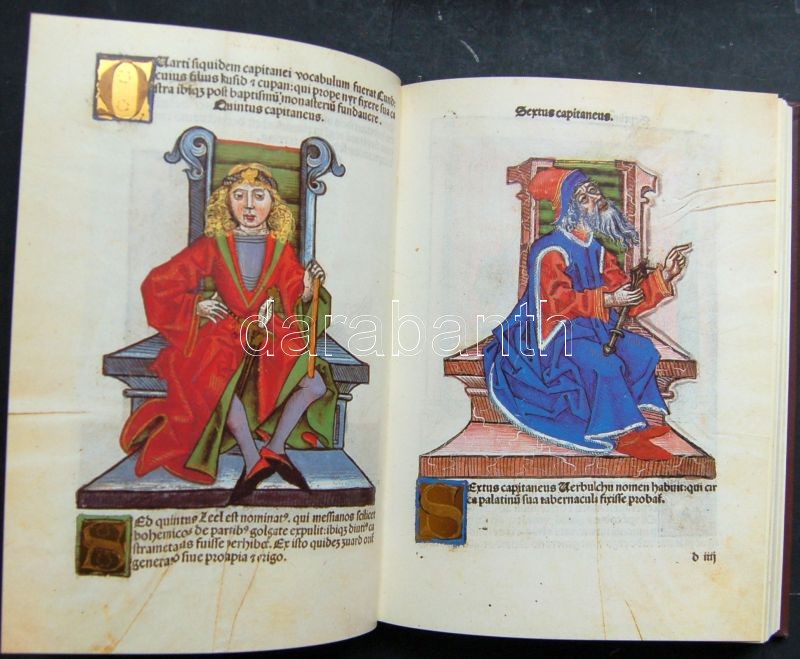 Quarti siquidem capitanei vocabulum fuerat Cund:
cuius filius kusid ⁊ cupan: qui prope nyr fixere sua ca
stra ibiqꝫ post baptismũ monasteriũ fundavere.
Quintus capitaneus.
Sed quintus Leel est nominatꝰ. qui messianos scilicet
bohemicos de partibꝰ golgate expulit: ibiqꝫ diutiꝰ ca
strametatus fuisse perhibet᷑. Ex isto quidẽ zuard
generatio sive prosapia ⁊ origo.
Sextus capitaneus.
Sextus capitaneus Uerbulchu nomen habuit: qui cir
ca palatinũ sua tabernaculi fixisse probat᷑.
d iiij
darabanth